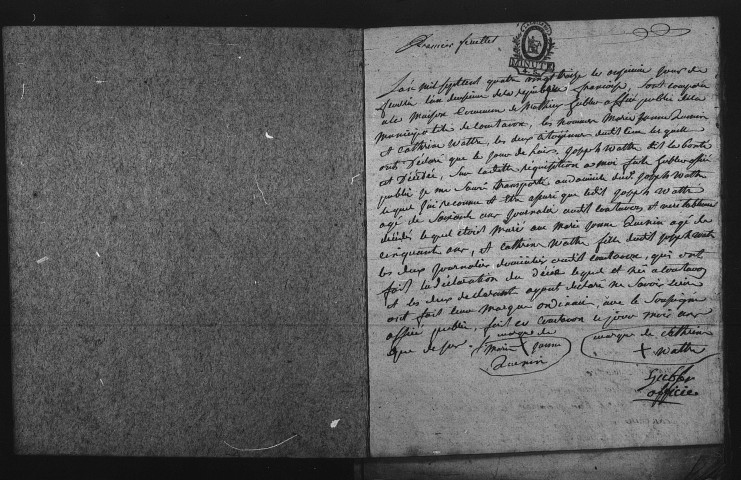 Premier feuillet
MINUTE
L'an mil septcent quatre vingt treize le onzieme jour de
fevrier l'an deuxieme de la republique francoise, sont comparu
a la Maison Commune de Mathieu Hubler officie public de la
municipalité de Courtavon, les nommes Marie Jeanne Quenin
et Catherine Wathe, les deux Citoyennes dudit lieu lequelle
ont Declaré que le jour de hier Joseph Wathe
est Décédée, sur ladite requisition a moi fait Hubler officié
public je me suis transporté audomicile dudit Joseph Wathe
lequel j'ai reconnu et etre assuré que ledit Joseph Wathe
agé de soixante ans Journalie audit Courtavon, et veritablement
décédé lequel etoit marié aux marie Jeanne Quenin agé de
cinquant ans, et Catherine Wathe fille dudit Joseph Wathe
les deux Journalier domicilier audit Courtavon, qui ont
fait la déclaration du décée lequel et née a Courtavon
et les deux declarant ayant declaré ne savoir ecrire
ont fait leur marque ordinair, avec le soussigné
officié public, fait ce Courtavon le jour mois ans
que de sur. marque de marque de Catherine
Marie + Jeanne + Wathe
Quenin
Hubler
officié